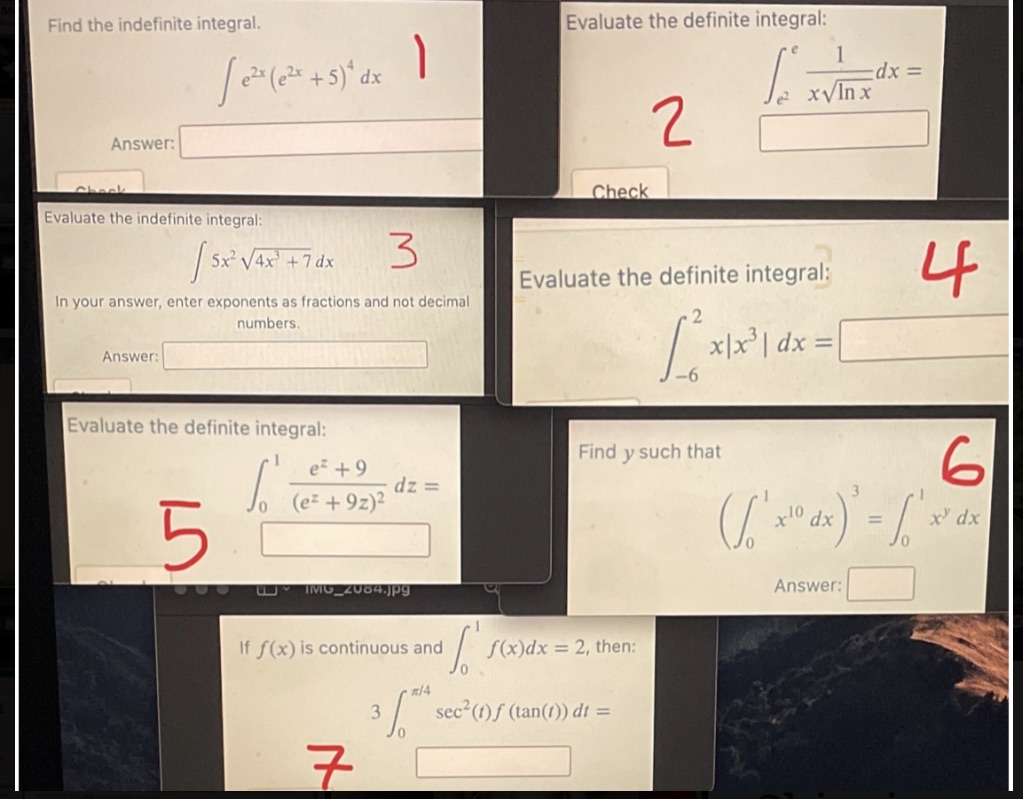 Find the indefinite integral.
∫ e^{2x} (e^{2x} + 5)^4 dx
1
Answer:
Check
Evaluate the definite integral:
∫_{e^2}^{e} 1/(x√(ln x)) dx =
2
Check
Evaluate the indefinite integral:
∫ 5x^2 √(4x^3 + 7) dx
3
In your answer, enter exponents as fractions and not decimal
numbers.
Answer:
Evaluate the definite integral:
4
∫_{-6}^{2} x|x^3| dx =
Evaluate the definite integral:
∫_0^1 (e^z + 9)/(e^z + 9z)^2 dz =
5
Find y such that
6
(∫_0^1 x^{10} dx)^3 = ∫_0^1 x^y dx
Answer:
IMG_2084.jpg
If f(x) is continuous and ∫_0^1 f(x)dx = 2, then:
3 ∫_0^{π/4} sec^2(t) f (tan(t)) dt =
7